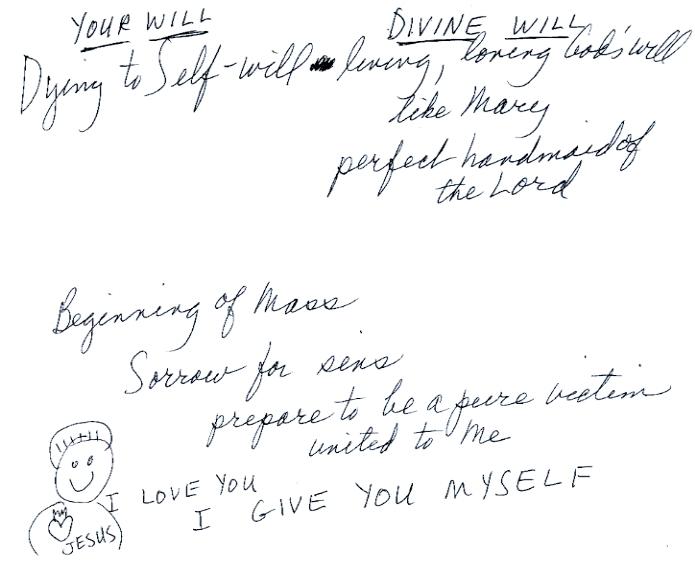 YOUR WILL DIVINE WILL
Dying to Self-will living, loving God's will
like Mary
perfect handmaid of
the Lord
Beginning of Mass
Sorrow for sins
prepare to be a pure victim
united to Me
I LOVE YOU
I GIVE YOU MYSELF
JESUS